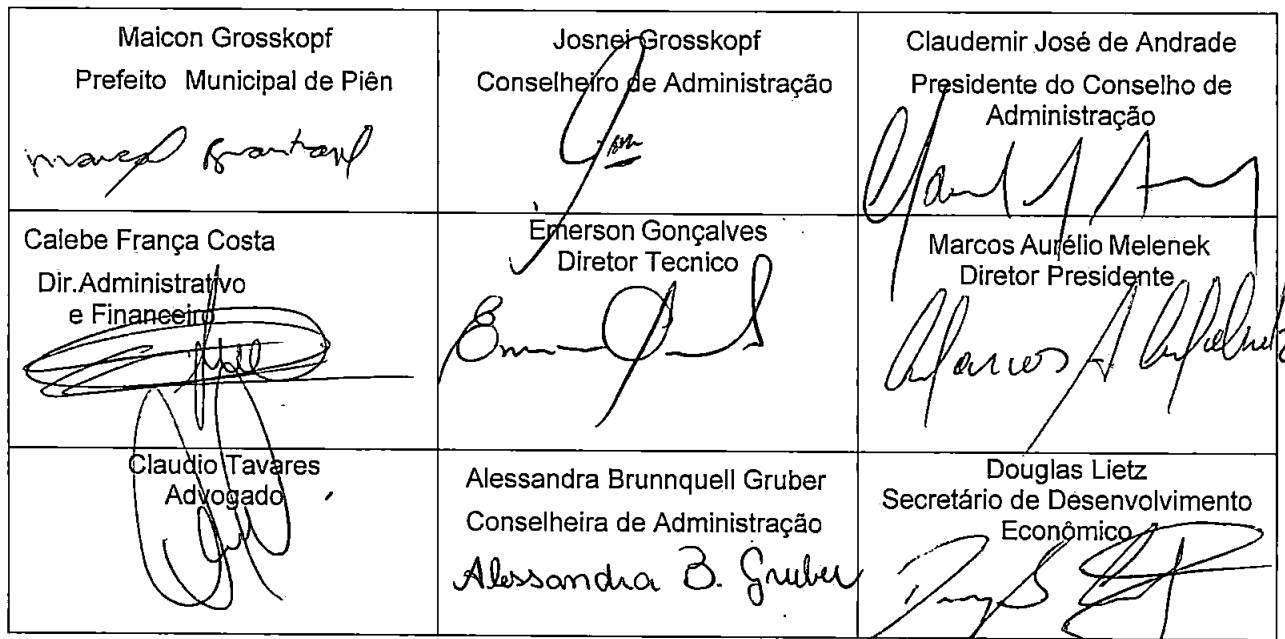 Maicon Grosskopf
Prefeito Municipal de Piên
Josnei Grosskopf
Conselheiro de Administração
Claudemir José de Andrade
Presidente do Conselho de
Administração
Calebe França Costa
Dir.Administrativo
e Financeiro
Emerson Gonçalves
Diretor Tecnico
Marcos Aurélio Melenek
Diretor Presidente
Marcos A
Claudio Tavares
Advogado
Alessandra Brunnquell Gruber
Conselheira de Administração
Alessandra B. Gruber
Douglas Lietz
Secretário de Desenvolvimento
Econômico